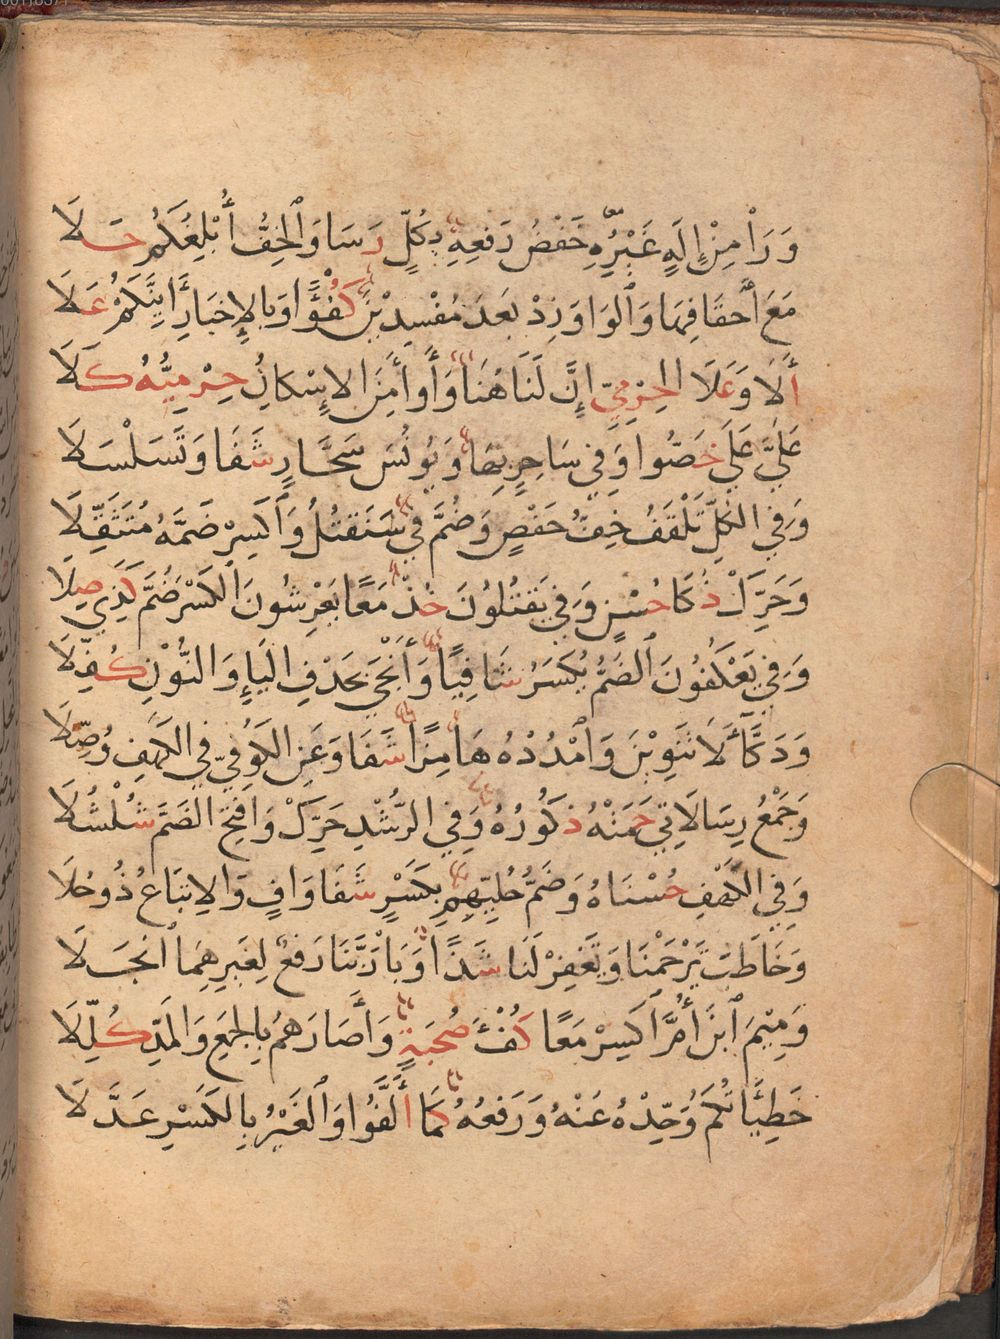 وَرَا مِنْ إِلَهٍ غَيْرُهُ خَفْضُ رَفْعِهِ بِكُلٍّ رَسَا وَالْخِفُّ أُبْلِغُكُمْ حَلَا
مَعَ أَحْقَافِهَا وَالْوَاوَ زِدْ بَعْدَ مُفْسِدِيْنَ كُفْؤًا وَبِالْإِخْبَارِ أَئِنَّكُمْ عَلَا
أَلَا وَعَلَا الْحِرْمِيُّ إِنَّ لَنَا هُنَا وَأَوَ أَمِنَ الْإِسْكَانُ حِرْمِيُّهُ كَلَا
عَلَيَّ عَلَى خَصُّوا وَفِي سَاحِرٍ بِهَا وَيُونُسَ سَحَّارٍ شَفَا وَتَسَلْسَلَا
وَفِي الْكُلِّ تَلْقَفْ خِفُّ حَفْصٍ وَضُمَّ فِي سَنَقْتُلُ وَاكْسِرْ ضَمَّهُ مُتَثَقِّلَا
وَحَرِّكْ ذُكَا حُسْنٍ وَفِي يَقْتُلُونَ خُذْ مَعًا يَعْرِشُونَ الْكَسْرُ ضُمَّ كَذِي صِلَا
وَفِي يَعْكُفُونَ الضَّمُّ يُكْسَرُ شَافِيًا وَأَنْجَى بِحَذْفِ الْيَاءِ وَالنُّوْنِ كُفِّلَا
وَدَكَّاءَ لَا تَنْوِيْنَ وَامْدُدْهُ هَامِزًا شَفَا وَعَنِ الْكُوفِيِّ فِي الْكَهْفِ وُصِّلَا
وَجَمْعُ رِسَالَاتِي حَمَتْهُ ذُكُورُهُ وَفِي الرُّشْدِ حَرِّكْ وَافْتَحِ الضَّمَّ شُلْشُلَا
وَفِي الْكَهْفِ حُسْنَاهُ وَضَمُّ حُلِيِّهِمْ بِكَسْرٍ شَفَا وَافٍ وَالِاتْبَاعُ ذُو حُلَا
وَخَاطَبَ تَرْحَمْنَا وَتَغْفِرْ لَنَا شَذًا وَبَا رَبَّنَا رَفْعٌ لِغَيْرِهِمَا انْجَلَا
وَمِيْمَ ابْنَ أُمَّ اكْسِرْ مَعًا كُفْءَ صُحْبَةٍ وَآصَارَهُمْ بِالْجَمْعِ وَالْمَدِّ كُلِّلَا
خَطِيْئَاتُكُمْ وَحِّدْهُ عَنْهُ وَرَفْعُهُ كَمَا أَلَّفُوا وَالْغَيْرُ بِالْكَسْرِ عَدَّلَا